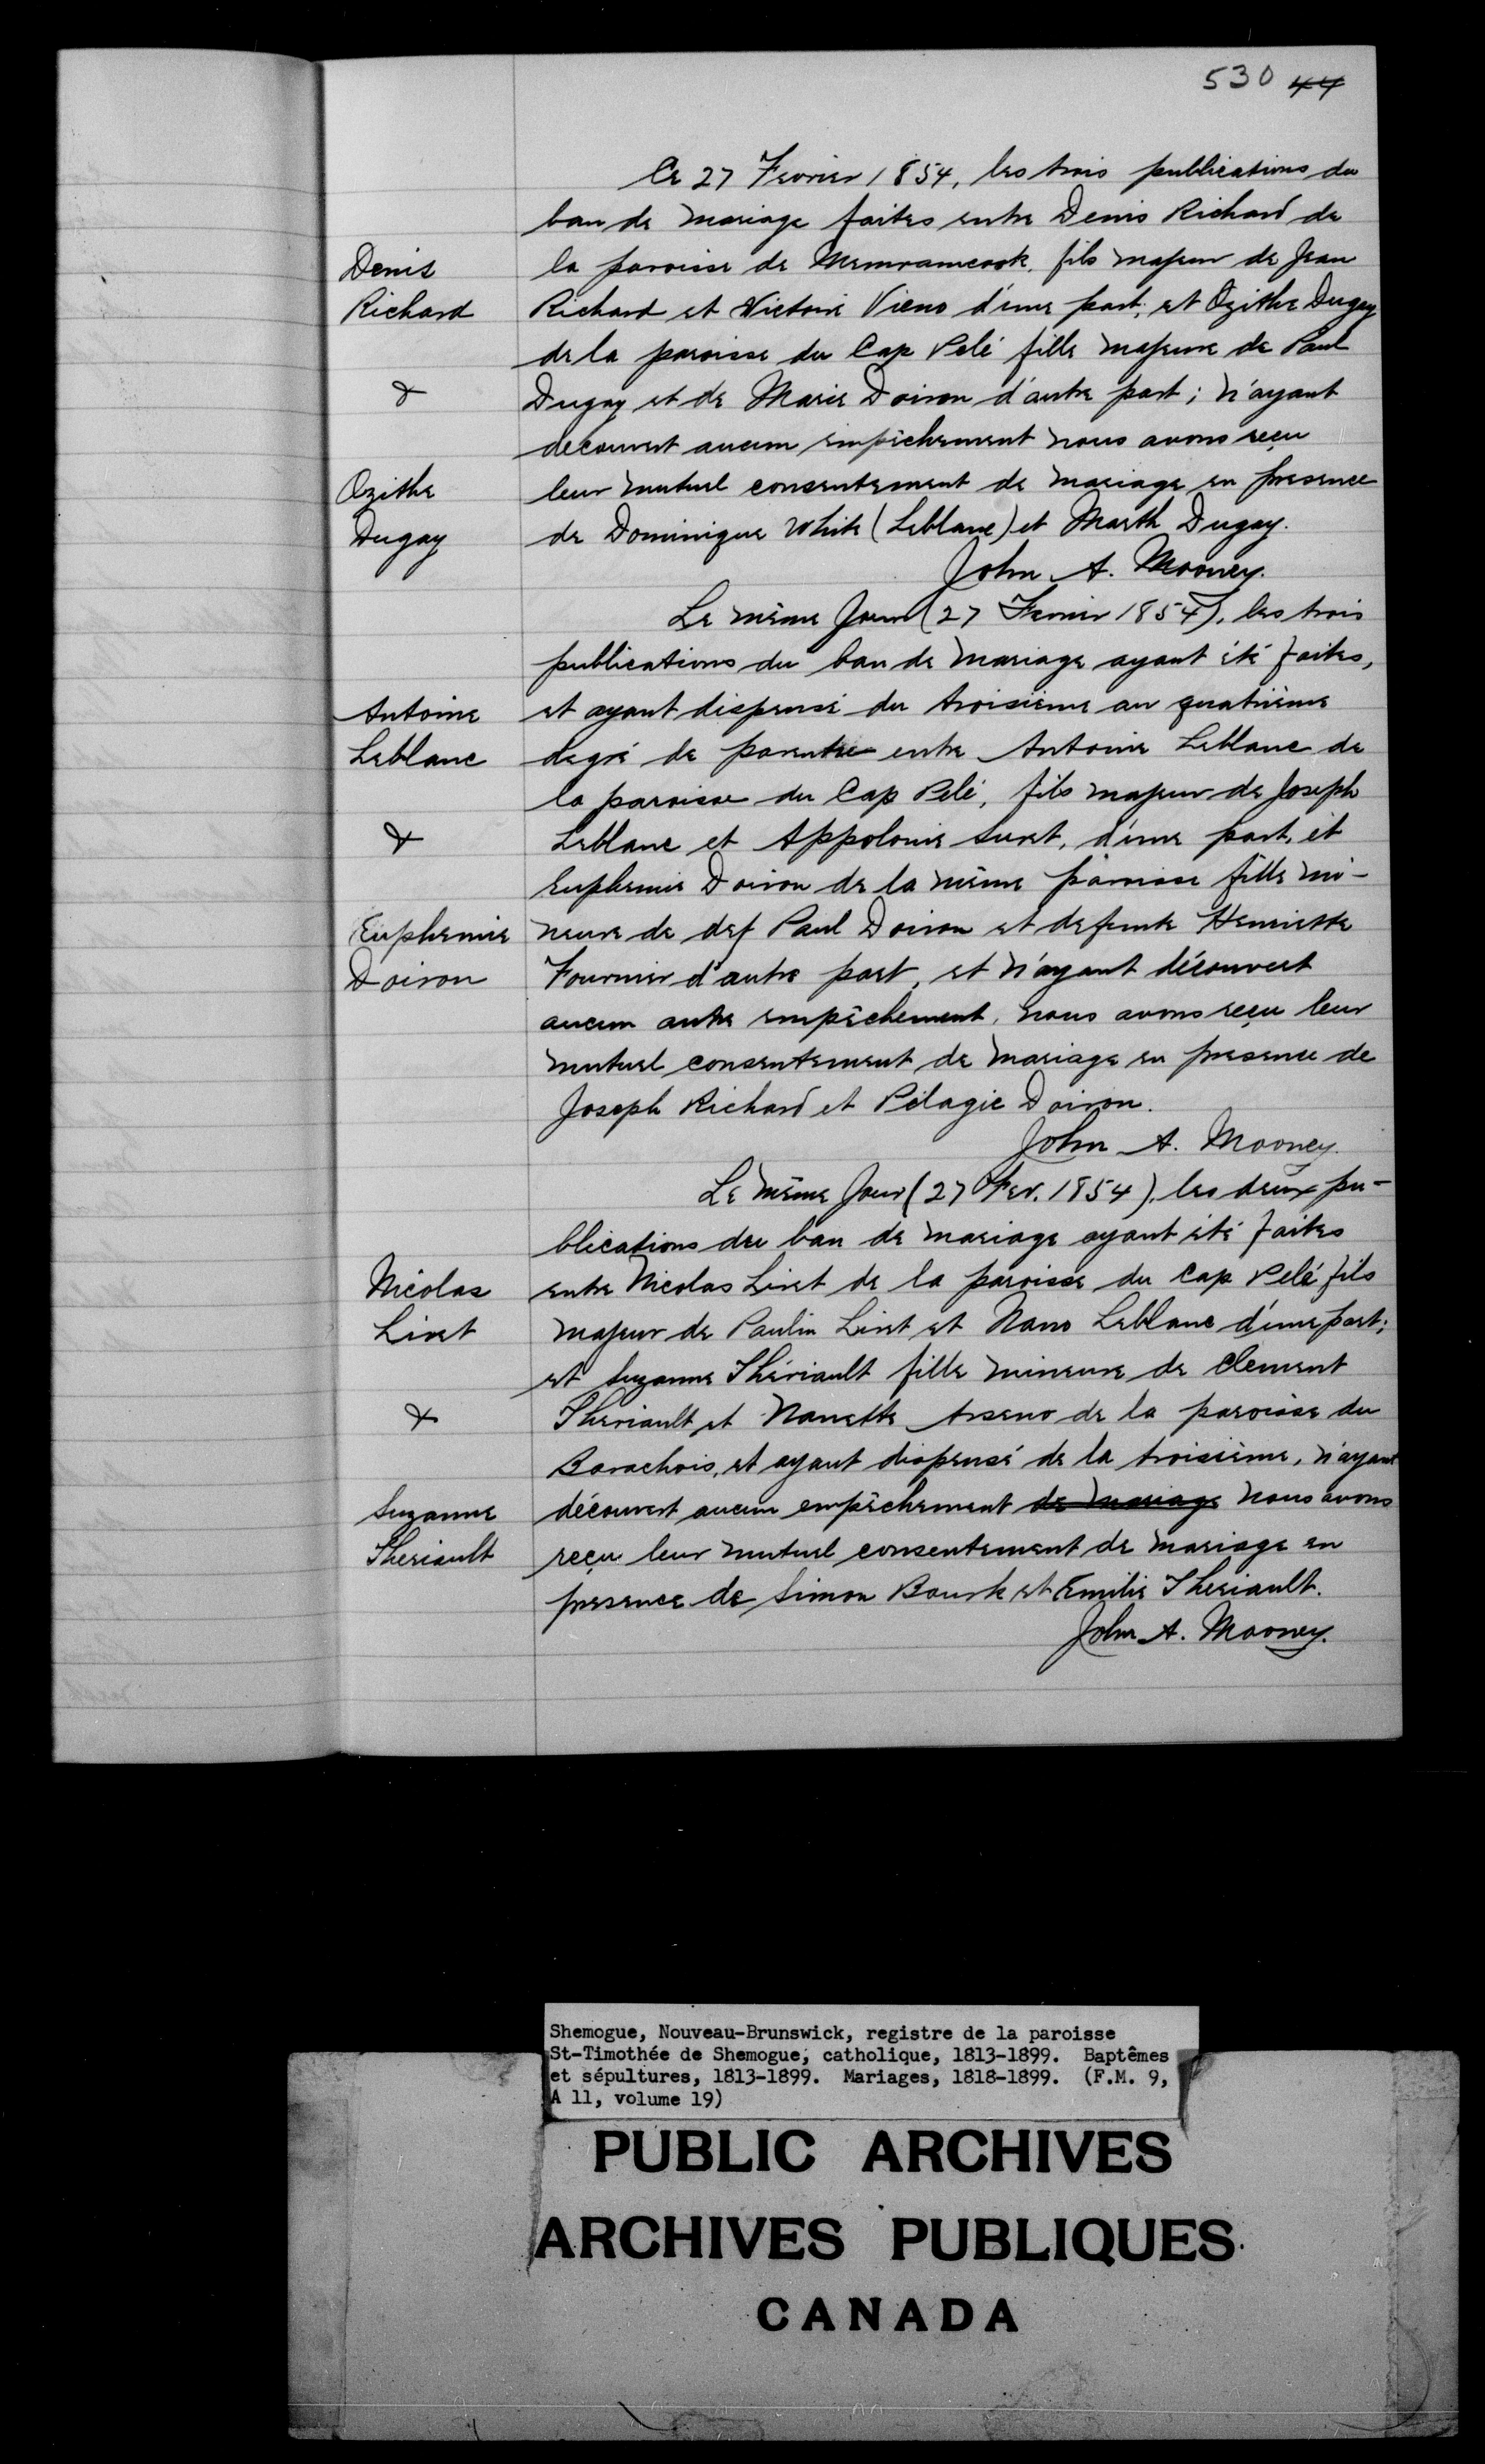 530 44
Ce 27 Fevrier 1854, les trois publications du
ban de mariage faites entre Denis Richard de
Denis
la paroisse de Memramcook, fils majeur de Jean
Richard
Richard et Victoire Vieno d'une part; et Ozithe Dugay
de la paroisse du Cap Pelé fille majeure de Paul
&
Dugay et de Marie Doiron d'autre part; n'ayant
decouvert aucun empêchement nous avons reçu
Ozithe
leur mutuel consentement de mariage en presence
Dugay
de Dominique White (Leblanc) et Marth Dugay.
John A. Mooney.
Le même Jour (27 Fevrier 1854), les trois
publications du ban de mariage ayant été faites,
Antoine
et ayant dispensé du troisième au quatrième
Leblanc
degré de parenté entre Antoine Leblanc de
la paroisse du Cap Pelé, fils majeur de Joseph
&
Leblanc et Appolonie Suret, d'une part, et
Euphemie Doiron de la même paroisse fille mi-
Euphemie
neure de def Paul Doiron et defunte Henriette
Doiron
Fournier d'autre part, et n'ayant découvert
aucun autre empêchement, nous avons reçu leur
mutuel consentement de mariage en presence de
Joseph Richard et Pélagie Doiron.
John A. Mooney.
Le même Jour (27 Fev. 1854), les deux pu-
blications du ban de mariage ayant été faites
Nicolas
entre Nicolas Liret de la paroisse du Cap Pelé fils
Liret
majeur de Paulin Liret et Nano Leblanc d'une part;
et Suzanne Thériault fille mineure de Clement
&
Theriault et Nanette Arseno de la paroisse du
Barachois, et ayant dispensé de la troisième, n'ayant
Suzanne
découvert aucun empêchement de mariage nous avons
Theriault
reçu leur mutuel consentement de mariage en
presence de Simon Bourk et Emilie Theriault.
John A. Mooney.
Shemogue, Nouveau-Brunswick, registre de la paroisse
St-Timothée de Shemogue, catholique, 1813-1899. Baptêmes
et sépultures, 1813-1899. Mariages, 1818-1899. (F.M. 9,
A 11, volume 19)
PUBLIC ARCHIVES
ARCHIVES PUBLIQUES
CANADA